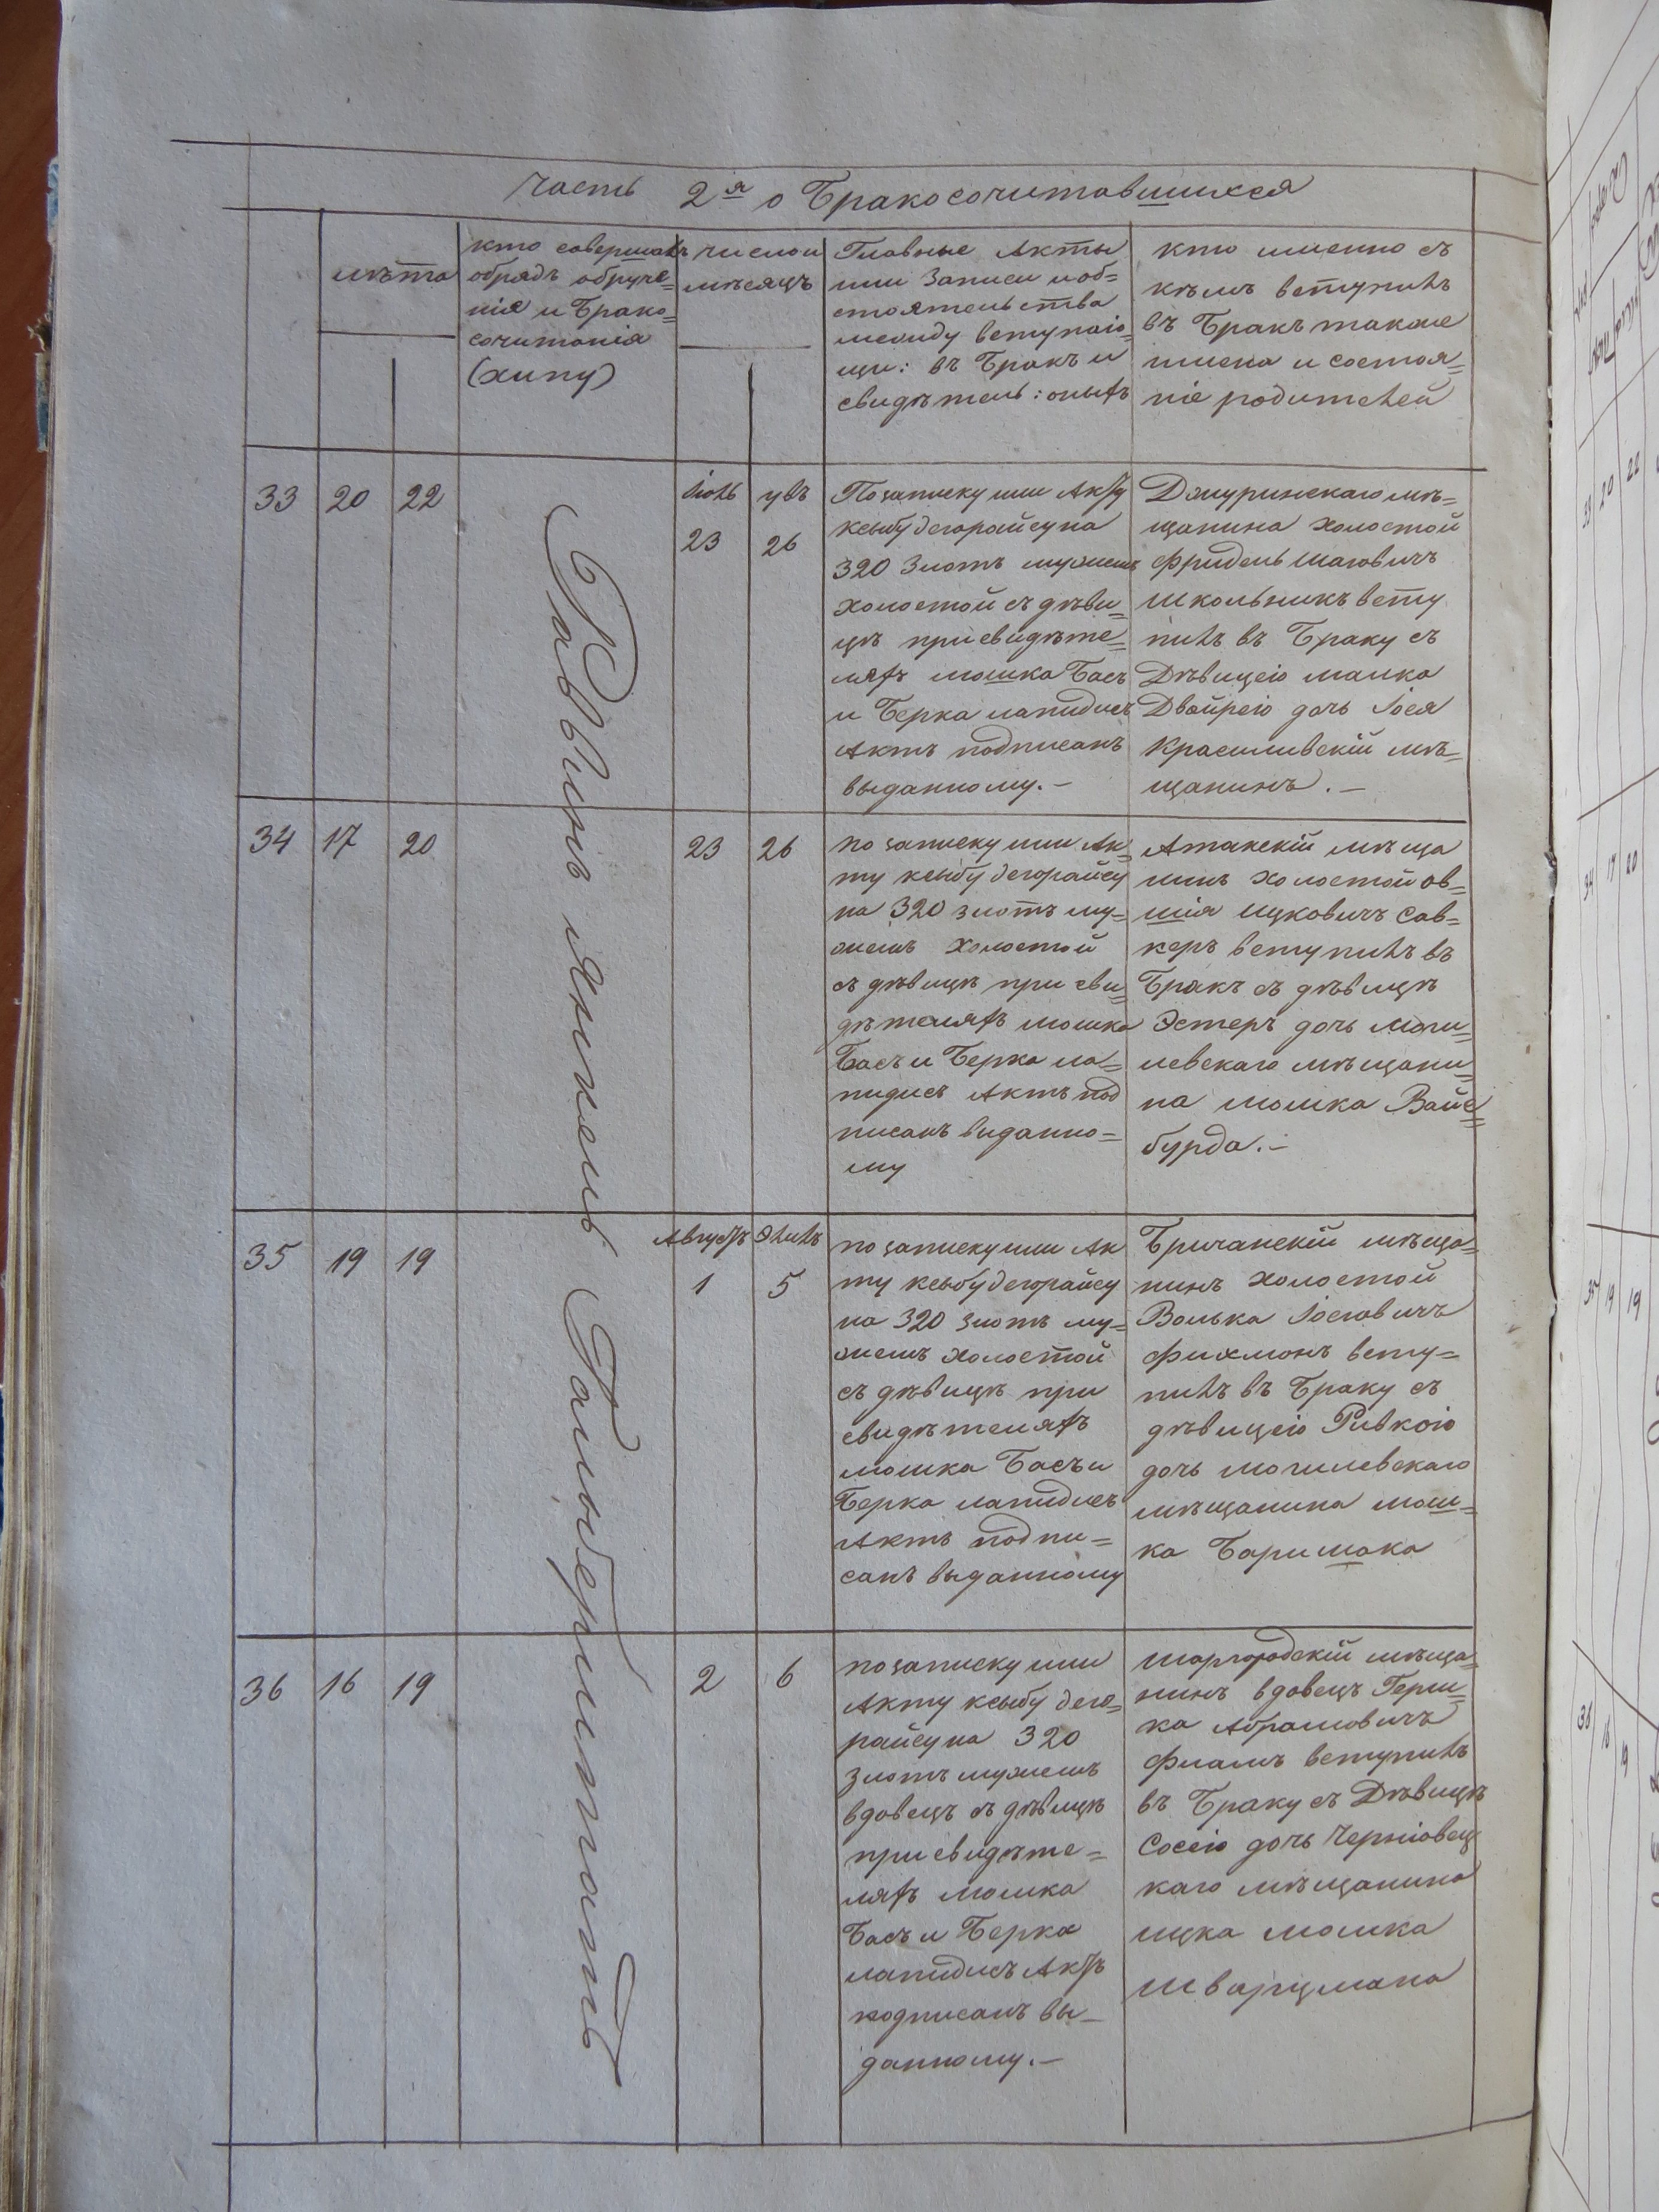 Часть 2я о Бракосочитавшихся
лѣта
кто совершалъ
обрядъ обруче=
нія и Брако=
сочитанія
(хупу)
число и
мѣсяцъ
Главные Акты
или Записи и об=
стоятельства
между вступаю=
щи: въ Бракъ и
свидѣтель: оныхъ
кто именно съ
кѣмъ вступилъ
въ Бракъ также
имена и состоя=
ніе родителей
Раввинъ Янкель Гальберштатъ
33
20
22
Іюль
23
26
По запиську или Акту
ксыбу дегорайсу на
320 Злотъ мужемъ
холостой съ дѣви=
цѣ при свидѣте=
ляхъ мошка Басъ
и Берка лапидисъ
Актъ подписанъ
выданному.-
Джуринскаго мѣ=
щанина холостой
фридель
Школьникъ всту
пилъ въ Браку съ
Дѣвицею малка
Двойрею дочь Іося
Красиливскій мѣ=
щанинъ.-
34
17
20
23
26
по запиську или Ак=
ту ксыбу дегорайсу
на 320 злотъ му=
жемъ холостой
съ дѣвицѣ при сви=
дѣтеляхъ мошка
Басъ и Берка ла=
пидисъ Актъ под
писанъ виданно=
му
Атакскій мѣща
нинъ холостой ов=
шія ицковичъ Сав=
керъ вступилъ въ
Бракъ съ дѣвицѣ
Эстеръ дочь моги=
левскаго мѣщани=
на мошка Вайс=
бурда.-
35
19
19
Августъ
1
Элилъ
5
по запиську или Ак
ту ксыбу дегорайсу
на 320 злотъ му=
жемъ холостой
съ дѣвицѣ при
свидѣтеляхъ
мошка Басъ и
Берка лапидисъ
Актъ подпи=
санъ выданному
Бричанскій мѣща=
нинъ холостой
Волька Іосіовичъ
Фихманъ всту=
пилъ въ Браку съ
дѣвицею Ривкою
дочь могилевскаго
мѣщанина мош=
ка Баришака
36
16
19
2
6
по запиську или
Акту ксыбу дего=
райсу на 320
злотъ мужемъ
вдовецъ съ дѣвицѣ
при свидѣте=
ляхъ мошка
Басъ и Берка
лапидисъ Актъ
подписанъ вы-
данному.-
шаргородскій мѣща=
нинъ вдовецъ Герш=
ка Абрамовичъ
Фламъ вступилъ
въ Браку съ Дѣвицѣ
Сосею дочь Черніовец
каго мѣщанина
ицка мошка
Шварцмана